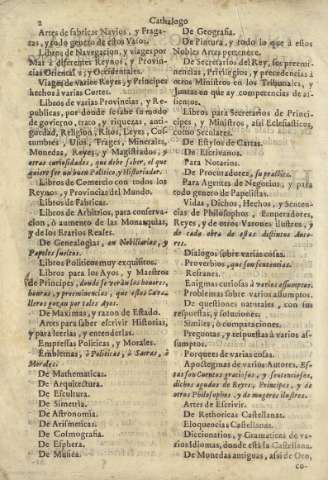 2 Cathalogo
Artes de fabricar Navios, y Fraga-
tas, y todo genero de estos Vasos.
Libros de Navegacion, y viages por
Mar à diferentes Reynos, y Provin-
cias Oriental s, y Occidentales.
Viages de varios Reyes, y Principes
hechos à varias Cortes.
Libros de varias Provincias, y Re-
publicas, por donde se sabe su modo
de govierno, trato, y riquezas, anti-
guedad, Religion, Ritos, Leyes, Cos-
tumbres, Usos, Trages, Minerales,
Monedas, Reyes, y Magistrados, y
otras curiosidades, que debe saber, el que
quiere ser un buen Politico, y Historiador.
Libros de Comercio con todos los
Reynos, y Provincias del Mundo.
Libros de Fabricas.
Libros de Arbitrios, para conserva-
cion, ò aumento de las Monarquias,
y de los Erarios Reales.
De Genealogias, en Nobiliarios, y
Papeles sueltos.
Libros Politicos muy exquisitos.
Libros para los Ayos, y Maestros
de Principes, donde se veràn los honores,
honras, y preeminencias, que estos Cava-
lleros gozan por tales Ayos.
De Maximas, y razon de Estado.
Artes para saber escrivir Historias,
y para leerlas, y entenderlas.
Empressas Politicas, y Morales.
Emblemas, à Politicas, à Sacras, à
Morales.
De Mathematicas.
De Arquitectura.
De Escultura.
De Simetria.
De Astronomia.
De Arismeticas.
De Cosmografia.
De Esphera.
De Musica.
De Geografia.
De Pintura, y todo lo que à estos
Nobles Artes pertenece.
De Secretarios del Rey, sus preemi-
nencias, Privilegios, y precedencias à
otros Ministros en los Tribunales, y
Juntas en que ay competencias de as-
sientos.
Libros, para Secretarios de Princi-
pes, y Ministros, assi Eclesiasticos,
como Seculares.
De Estylos de Cartas.
De Escrivanos.
Para Notarios.
De Procuradores, su practica.
Para Agentes de Negocios, y para
todo genero de Papelistas.
Vidas, Dichos, Hechos, y Senten-
cias de Philosophos, Emperadores,
Reyes, y de otros Varones ilustres, y
de cada obra de estas distintos Auto-
res.
Dialogos sobre varias cosas.
Proverbios, que son sentencias.
Refranes.
Enigmas curiosas à varios assumptos.
Problemas sobre varios assumptos.
De questiones naturales, con sus
respuestas, y soluciones.
Similes, ò comparaciones.
Preguntas, y respuestas à varios as-
sumptos.
Porquees de varias cosas.
Apoctegmas de varios Autores. Es-
tas son Cuentos graciosos, y sentenciosos,
dichos agudos de Reyes, Principes, y de
otros Philosophos, y de mugeres ilustres.
Artes de Escrivir.
De Rethoricas Castellanas.
Eloquencias Castellanas.
Diccionarios, y Gramaticas de va-
rios Idiomas, donde està la Castellana.
De Monedas antiguas, assi de Oro,
co-